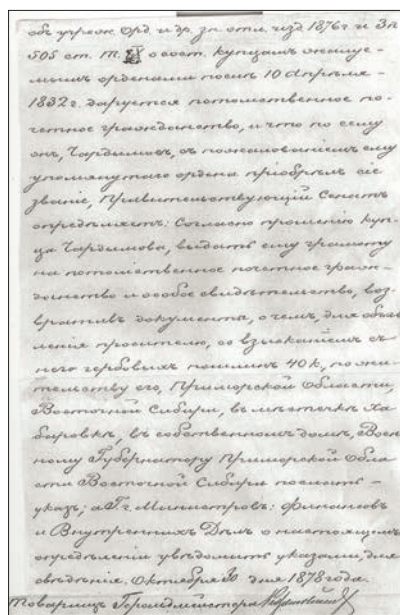 объ учреж. Орд. и др. зн. отл. изд. 1876 г. и 3 п.
505 ст. т. о сост. купцамъ жалуе-
мымъ орденами послѣ 10 Апрѣля
1832 г. даруется потомственное по-
четное гражданство, и что по сему
онъ, Чардымовъ, съ пожалованіемъ ему
упомянутаго ордена пріобрѣлъ сіе
званіе, Правительствующій Сенатъ
опредѣляетъ: Согласно прошенію куп-
ца Чардымова, выдать ему грамоту
на потомственное почетное граж-
данство и особое свидѣтельство, воз-
вративъ документы, о чемъ, для объяв-
ленія просителю, со взысканіемъ съ
него гербовыхъ пошлинъ 40 к, по жи-
тельству его, Приморской Области,
Восточной Сибири, въ мѣстечкѣ Ха-
баровкѣ, въ собственномъ домѣ, Воен-
ному Губернатору Приморской Обла-
сти Восточной Сибири послать
указъ; а Гг. Министровъ: Финансовъ
и Внутреннихъ Дѣлъ о настоящемъ
опредѣленіи увѣдомить указами, для
свѣдѣнія. Октября 30 дня 1878 года.
Товарищъ Герольдмейстера